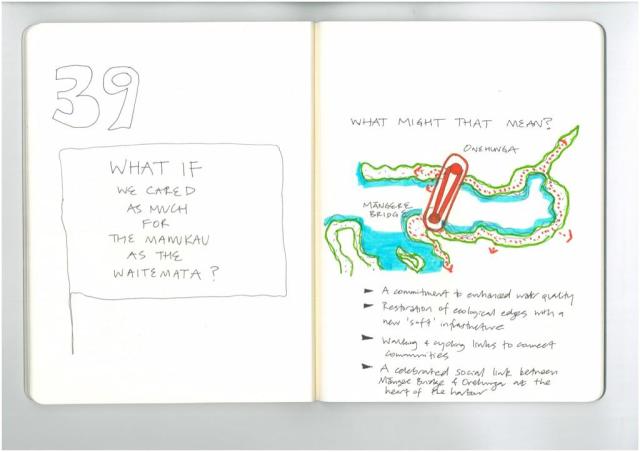 39
WHAT IF
WE CARED
AS MUCH
FOR
THE MANUKAU
AS THE
WAITEMATA?
WHAT MIGHT THAT MEAN?
ONEHUNGA
MĀNGERE
BRIDGE
► A commitment to enhanced water quality
► Restoration of ecological edges with a
new 'soft' infrastructure
► Walking & cycling links to connect
communities
► A celebrated social link between
Māngere Bridge & Onehunga at the
heart of the harbour